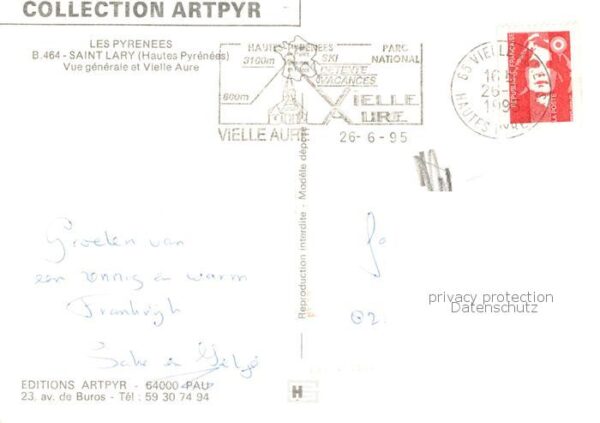 COLLECTION ARTPYR
LES PYRENEES
B.464 - SAINT LARY (Hautes Pyrénées)
Vue générale et Vielle Aure
HAUTES PYRENEES
PARC
NATIONAL
3100m
SKI
VACANCES
800m
VIELLE
AURE
VIELLE AURE
26-6-95
65 VIELLE
HAUTES PYR
REPUBLIQUE FRANCAISE
LA POSTE
Reproduction interdite - Modèle déposé
Groeten van
een zonnig en warm
Frankrijk
privacy protection
Datenschutz
EDITIONS ARTPYR - 64000 PAU
23, av. de Buros - Tél : 59 30 74 94
H